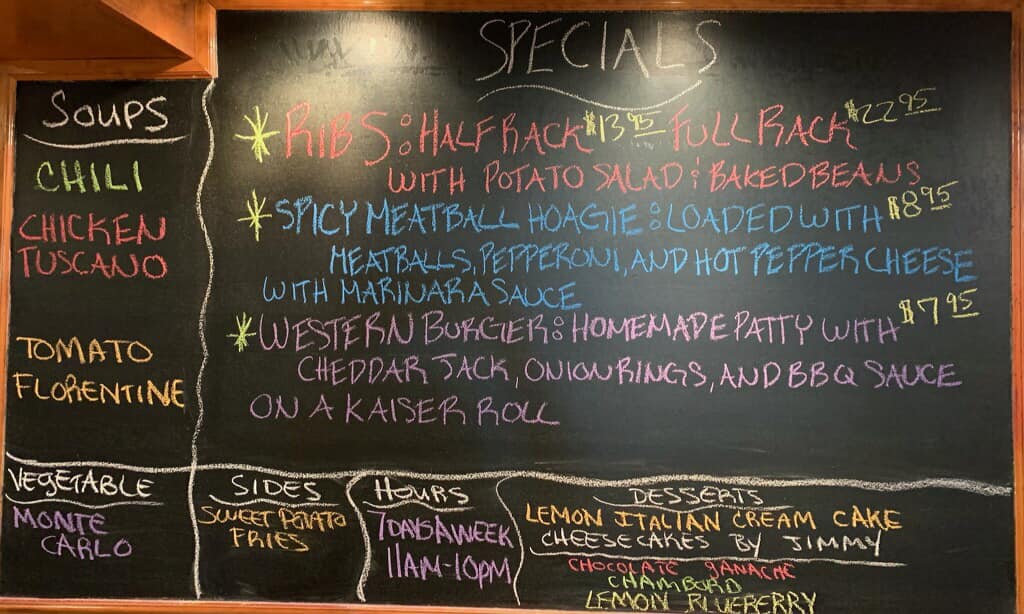 SPECIALS
SOUPS
CHILI
CHICKEN
TUSCANO
TOMATO
FLORENTINE
* RIBS: HALF RACK $13.95 FULL RACK $22.95
WITH POTATO SALAD & BAKED BEANS
* SPICY MEATBALL HOAGIE: LOADED WITH $8.95
MEATBALLS, PEPPERONI, AND HOT PEPPER CHEESE
WITH MARINARA SAUCE
* WESTERN BURGER: HOMEMADE PATTY WITH $7.95
CHEDDAR JACK, ONION RINGS, AND BBQ SAUCE
ON A KAISER ROLL
VEGETABLE
MONTE
CARLO
SIDES
SWEET POTATO
FRIES
HOURS
7 DAYS A WEEK
11AM-10PM
DESSERTS
LEMON ITALIAN CREAM CAKE
CHEESECAKES BY JIMMY
CHOCOLATE GANACHE
CHAMBORD
LEMON BLUEBERRY